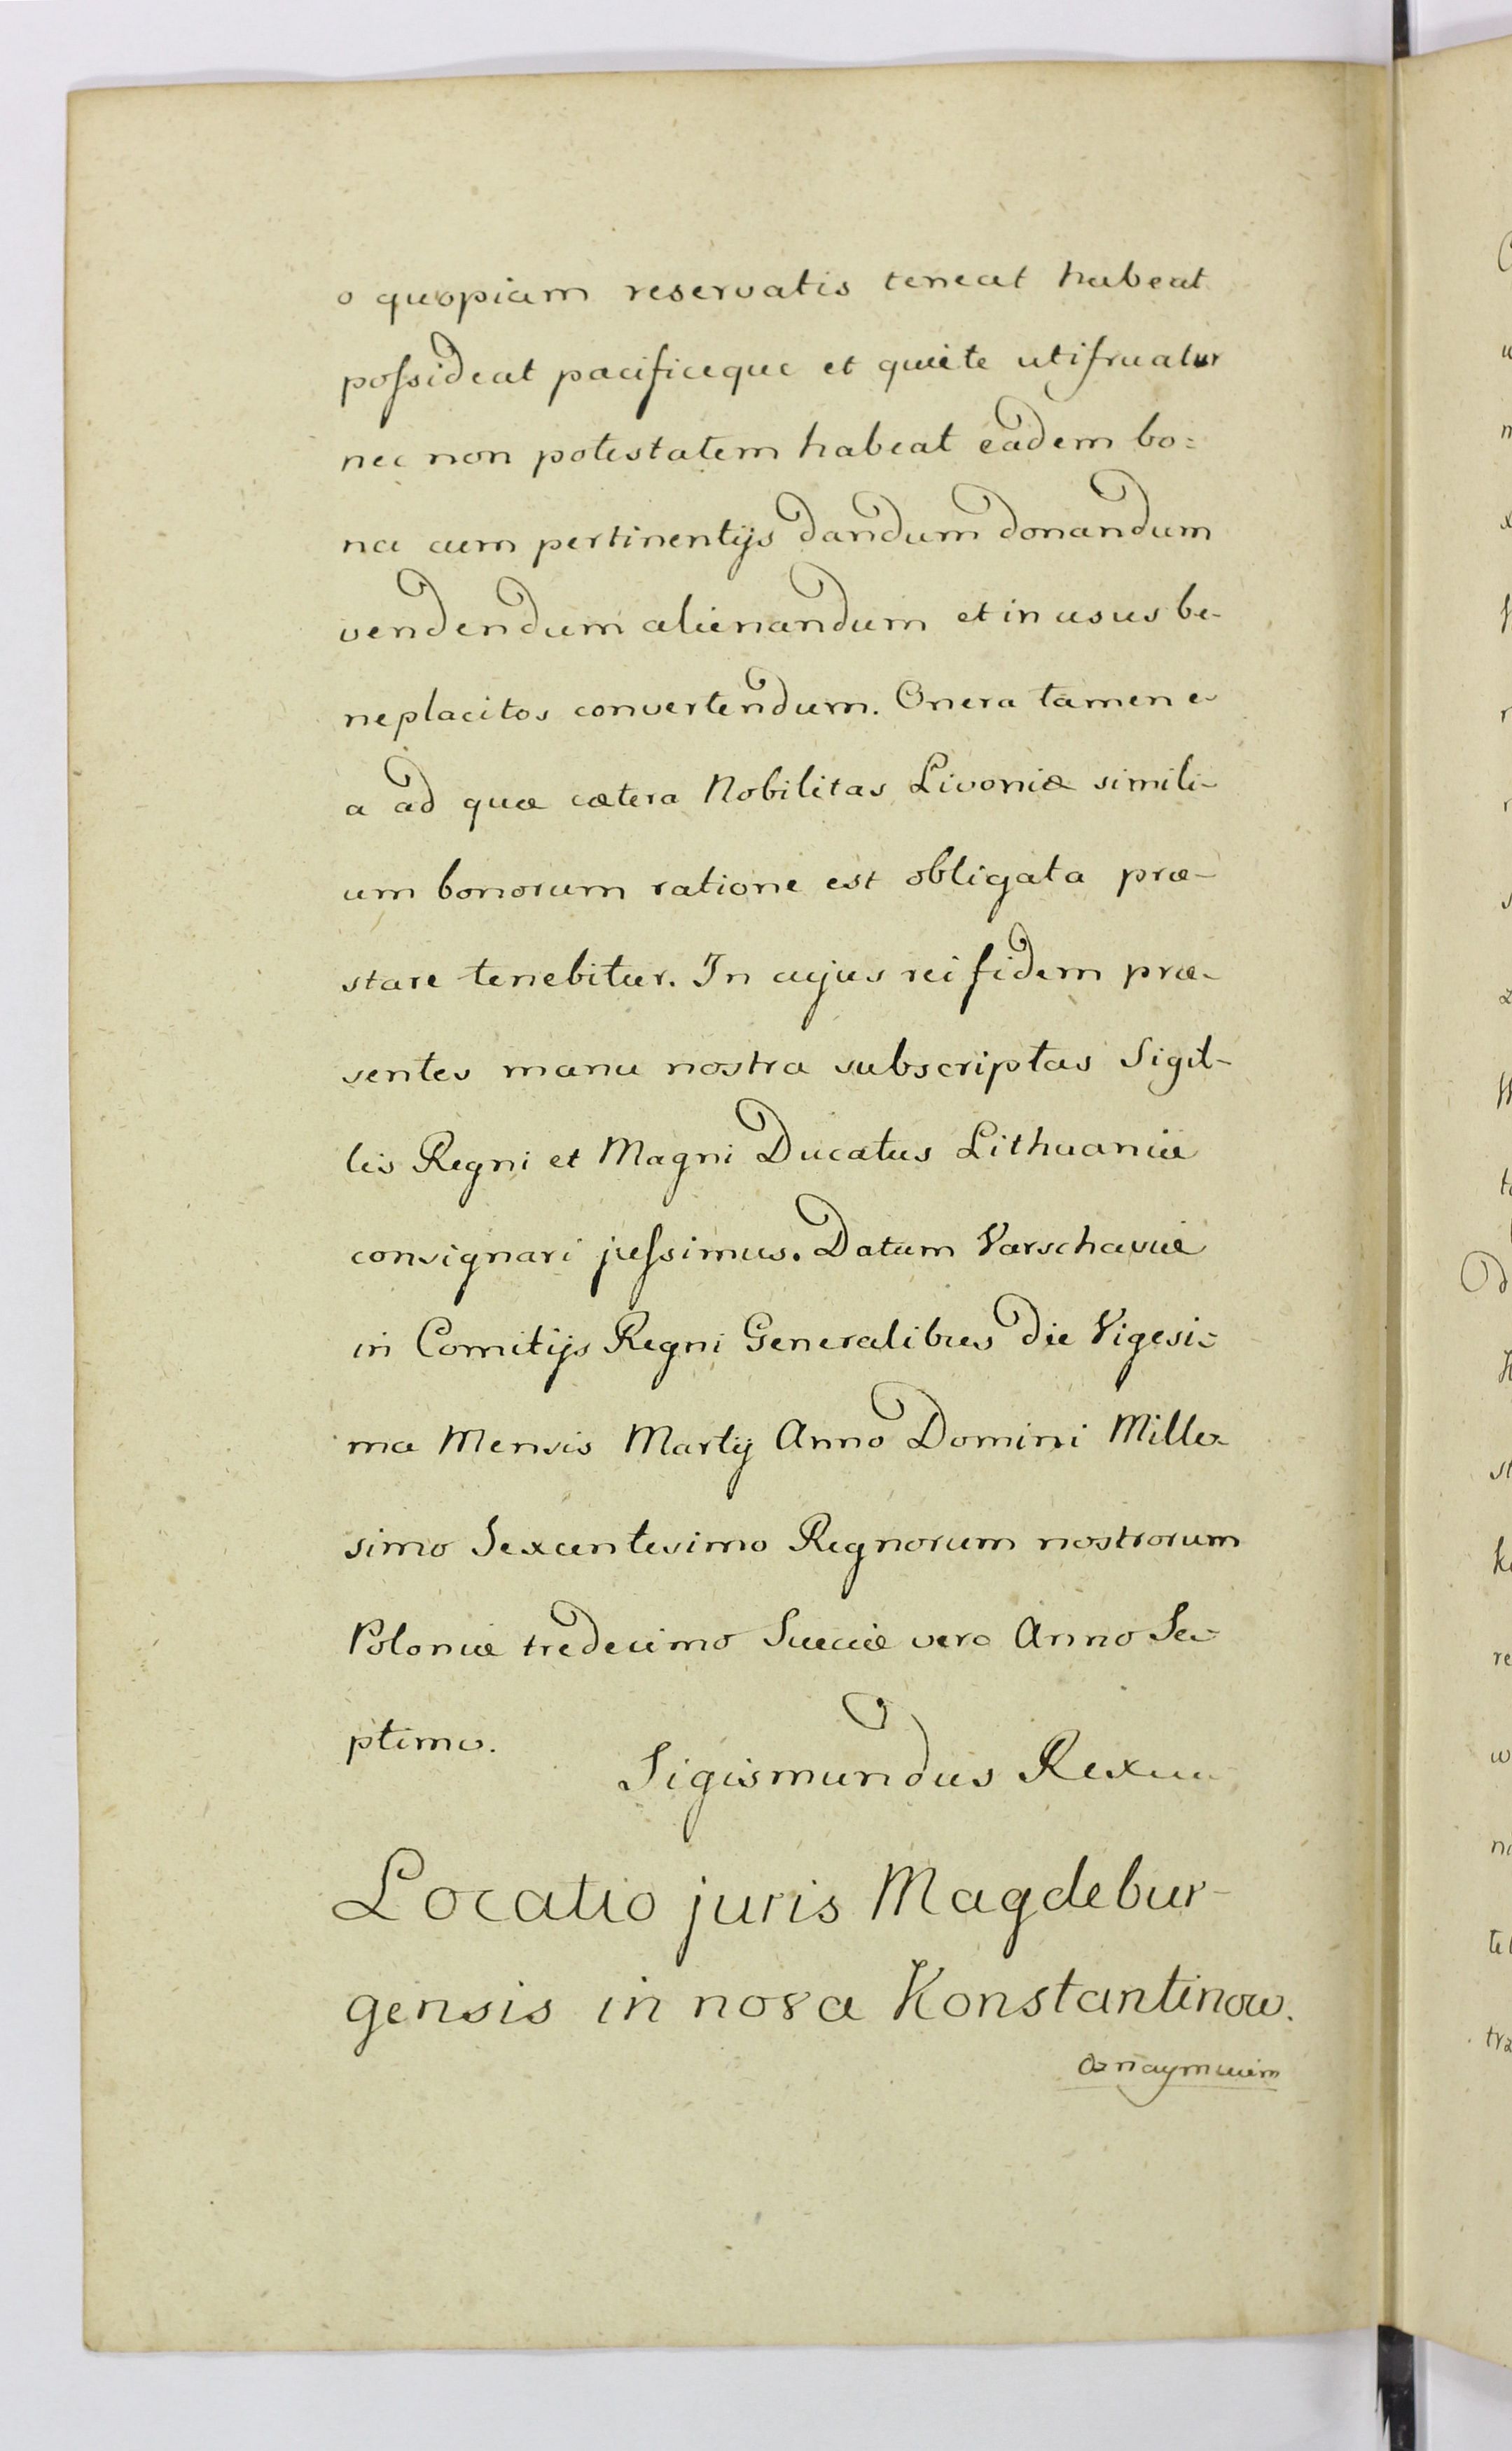 o quopiam reservatis teneat habeat
possideat pacificeque et quiete utifruatur
nec non potestatem habeat eadem bo=
na cum pertinentijs dandum donandum
vendendum alienandum et in usus be-
neplacitos convertendum. Onera tamen e-
a ad quæ cætera Nobilitas Livoniæ simili-
um bonorum ratione est obligata præ-
stare tenebitur. In cujus rei fidem præ-
sentes manu nostra subscriptas Sigil-
lis Regni et Magni Ducatus Lithuaniæ
consignari jussimus. Datum Varschaviæ
in Comitijs Regni Generalibus die Vigesi=
ma Mensis Martij Anno Domini Mille-
simo Sexcentesimo Regnorum nostrorum
Poloniæ tredecimo Sueciæ vero Anno Se-
ptimo.
Sigismundus Rex
Locatio juris Magdebur-
gensis in nova Konstantinow.